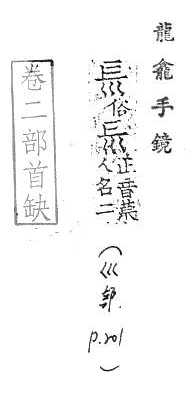 龍龕手鏡
𡿭俗𡿭正音荒
人名二
(巛部
p.201)
卷二部首缺